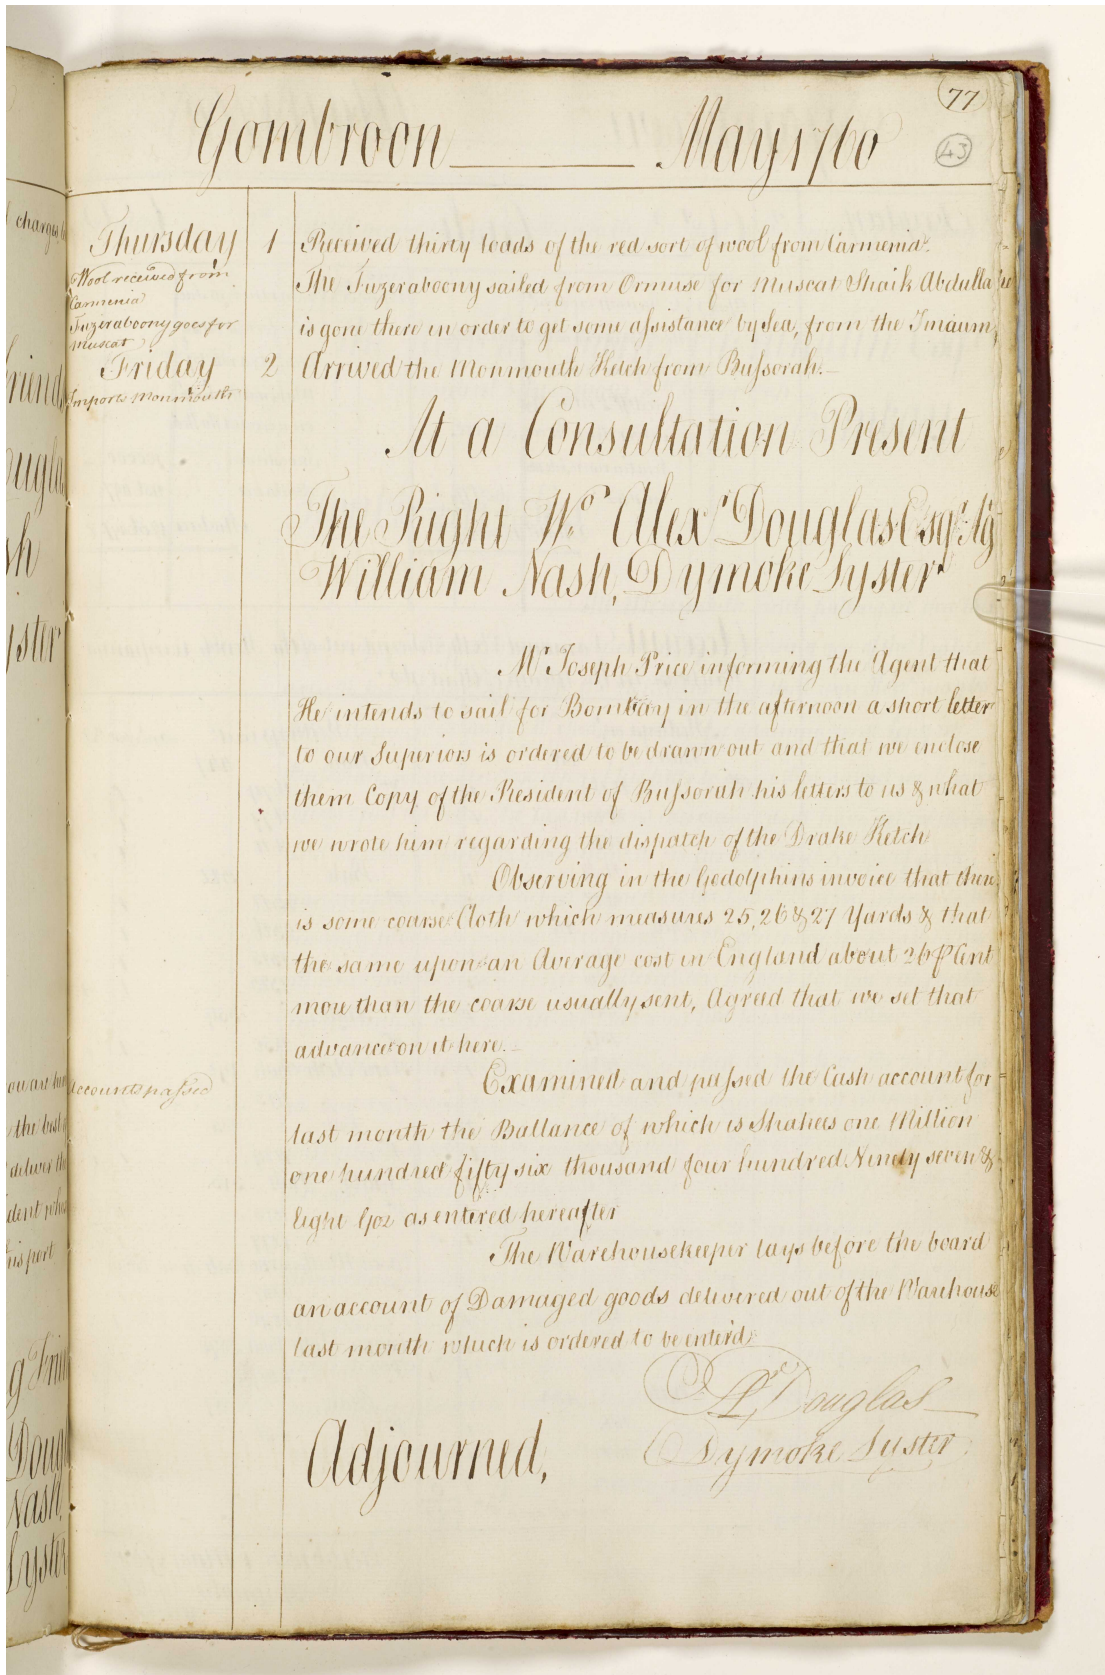 77
43
Gombroon May 1760
Thursday 1 Received thirty loads of the red sort of wool from Carmenia.
Wool received from
Carmenia
Fuzeraboony goes for
Muscat
The Fuzeraboony sailed from Ormuse for Muscat Shaik Abdulla
is gone there in order to get some assistance by Sea, from the Imaum,
Friday 2 Arrived the Monmouth Ketch from Bussorah.
Imports Monmouth
At a Consultation Present
The Right Wo. Alexr. Douglas Esqr. Ag
William Nash, Dymoke Lyster
Mr Joseph Price informing the Agent that
He intends to sail for Bombay in the afternoon a short letter
to our Superiors is ordered to be drawn out and that we enclose
them Copy of the Resident of Bussorah his letters to us & what
we wrote him regarding the dispatch of the Drake Ketch
Observing in the Godolphins invoice that there
is some coarse Cloth which measures 25, 26 & 27 Yards & that
the same upon an Average cost in England about 26 P Cent
more than the coarse usually sent, Agreed that we set that
advance on it here.
Accounts passed
Examined and passed the Cash account for
last month the Ballance of which is Shahees one Million
one hundred fifty six thousand four hundred Ninety seven &
Eight Goz as entered hereafter
The Warehousekeeper lays before the board
an account of Damaged goods delivered out of the Warehouse
last month which is ordered to be enter'd.
Ar Douglas
Dymoke Lyster
Adjourned,